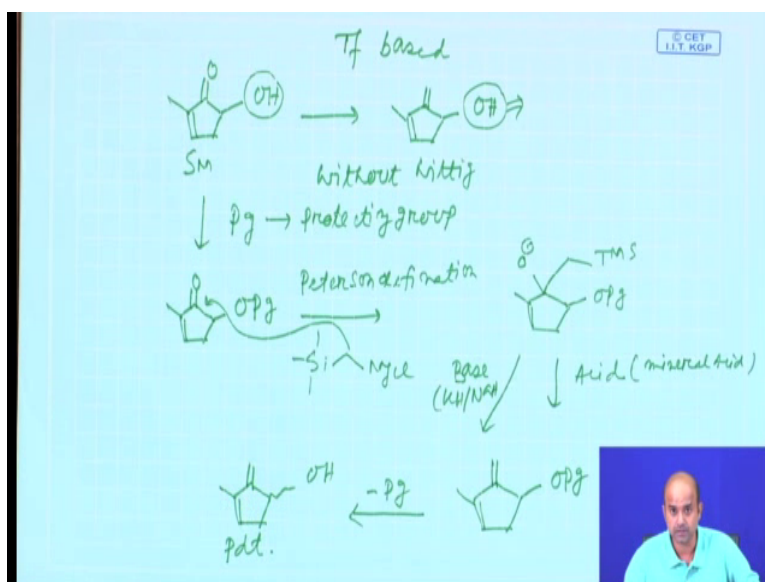 Tf based
© CET
I.I.T. KGP
O
OH
OH
SM
without wittig
Pg → protecting group
O
OPg
Peterson olefination
O⊖
TMS
OPg
Si
MgCl
Base
(KH/NaH
Acid (mineral Acid)
OH
-Pg
OPg
Pdt.